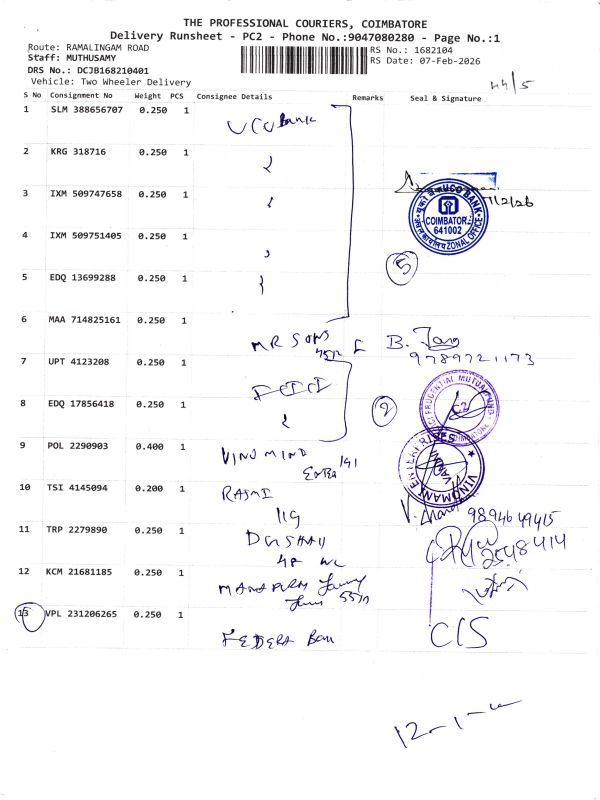 THE PROFESSIONAL COURIERS, COIMBATORE
Delivery Runsheet - PC2 - Phone No.:9047080280 - Page No.:1
Route: RAMALINGAM ROAD
Staff: MUTHUSAMY
DRS No.: DCJB168210401
Vehicle: Two Wheeler Delivery
RS No.: 1682104
RS Date: 07-Feb-2026
S No Consignment No Weight PCS Consignee Details Remarks Seal & Signature
1 SLM 388656707 0.250 1 UCO Bank
2 KRG 318716 0.250 1
3 IXM 509747658 0.250 1
UCO BANK
COIMBATORE
641002
ZONAL OFFICE
4 IXM 509751405 0.250 1
5 EDQ 13699288 0.250 1
5
6 MAA 714825161 0.250 1
MR SONS
B.
9789721173
7 UPT 4123208 0.250 1
8 EDQ 17856418 0.250 1
2
PRUDENTIAL MUTUAL FUND
9 POL 2290903 0.400 1
VINOMANI ENTERPRISES
10 TSI 4145094 0.200 1 RASMI
119
9894649415
11 TRP 2279890 0.250 1
2548414
12 KCM 21681185 0.250 1
13 VPL 231206265 0.250 1
FEDERA Ban
CCS
12-1-